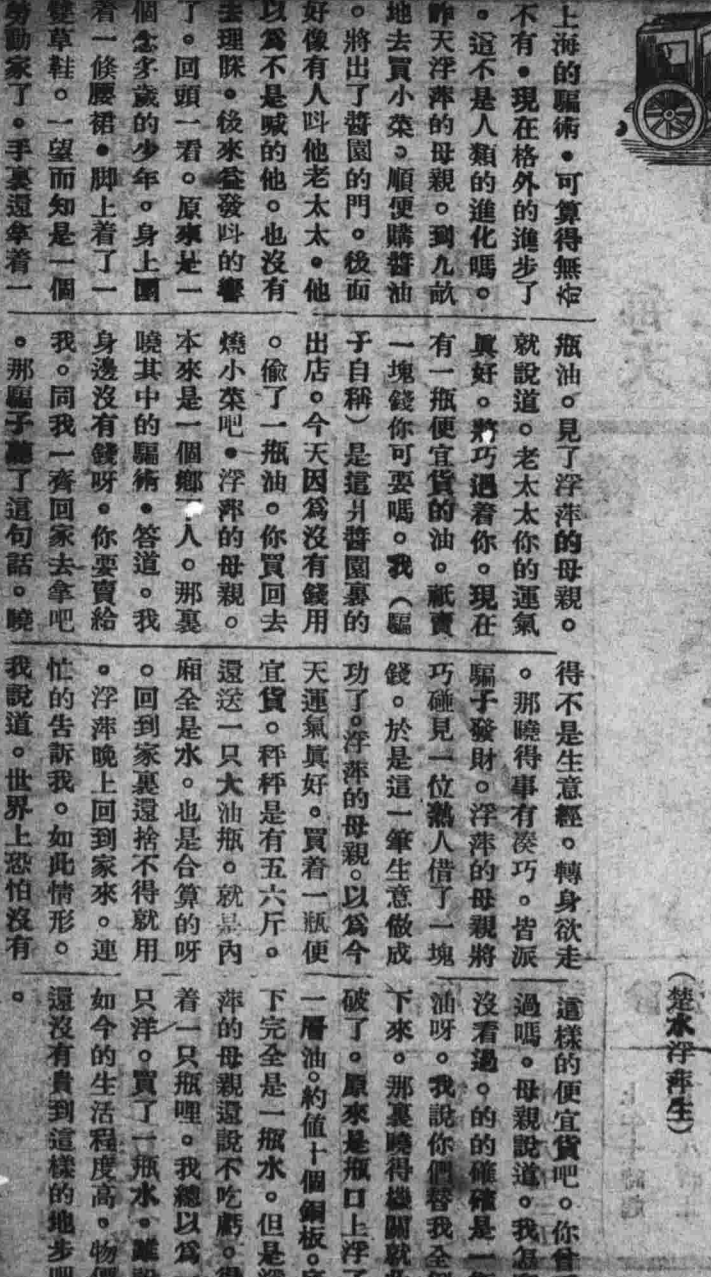 上海的騙術。可算得無奇
不有。現在格外的進步了
。這不是人類的進化嗎。
昨天浮萍的母親。到九畝
地去買小菜。順便購醬油
。將出了醬園的門。後面
好像有人呌他老太太。他
以爲不是喊的他。也沒有
去理睬。後來益發呌的響
了。回頭一看。原來是一
個念多歲的少年。身上圍
着一條腰裙。脚上着了一
雙草鞋。一望而知是一個
勞動家了。手裏還拿着一
瓶油。見了浮萍的母親。
就說道。老太太你的運氣
眞好。將巧遇着你。現在
有一瓶便宜貨的油。祇賣
一塊錢你可要嗎。我（騙
子自稱）是這爿醬園裏的
出店。今天因爲沒有錢用
。偷了一瓶油。你買回去
燒小菜吧。浮萍的母親。
本來是一個鄉下人。那裏
曉其中的騙術。答道。我
身邊沒有錢呀。你要賣給
我。同我一齊回家去拿吧
。那騙子聽了這句話。曉
得不是生意經。轉身欲走
。那曉得事有湊巧。皆派
騙子發財。浮萍的母親將
巧碰見一位熟人借了一塊
錢。於是這一筆生意做成
功了。浮萍的母親。以爲今
天運氣眞好。買着一瓶便
宜貨。秤秤是有五六斤。
還送一只大油瓶。就是內
廂全是水。也是合算的呀
。回到家裏還捨不得就用
。浮萍晚上回到家來。連
忙的告訴我。如此情形。
我說道。世界上恐怕沒有
（楚水浮萍生）
這樣的便宜貨吧。你曾
過嗎。母親說道。我怎
沒看過。的的確確是一
油呀。我說你們替我全
下來。那裏曉得機關就
破了。原來是瓶口上浮了
一層油。約値十個銅板。
下完全是一瓶水。但是浮
萍的母親還說不吃虧。得
着一只瓶哩。我總以爲
只洋。買了一瓶水。雖說
如今的生活程度高。物價
還沒有貴到這樣的地步
。